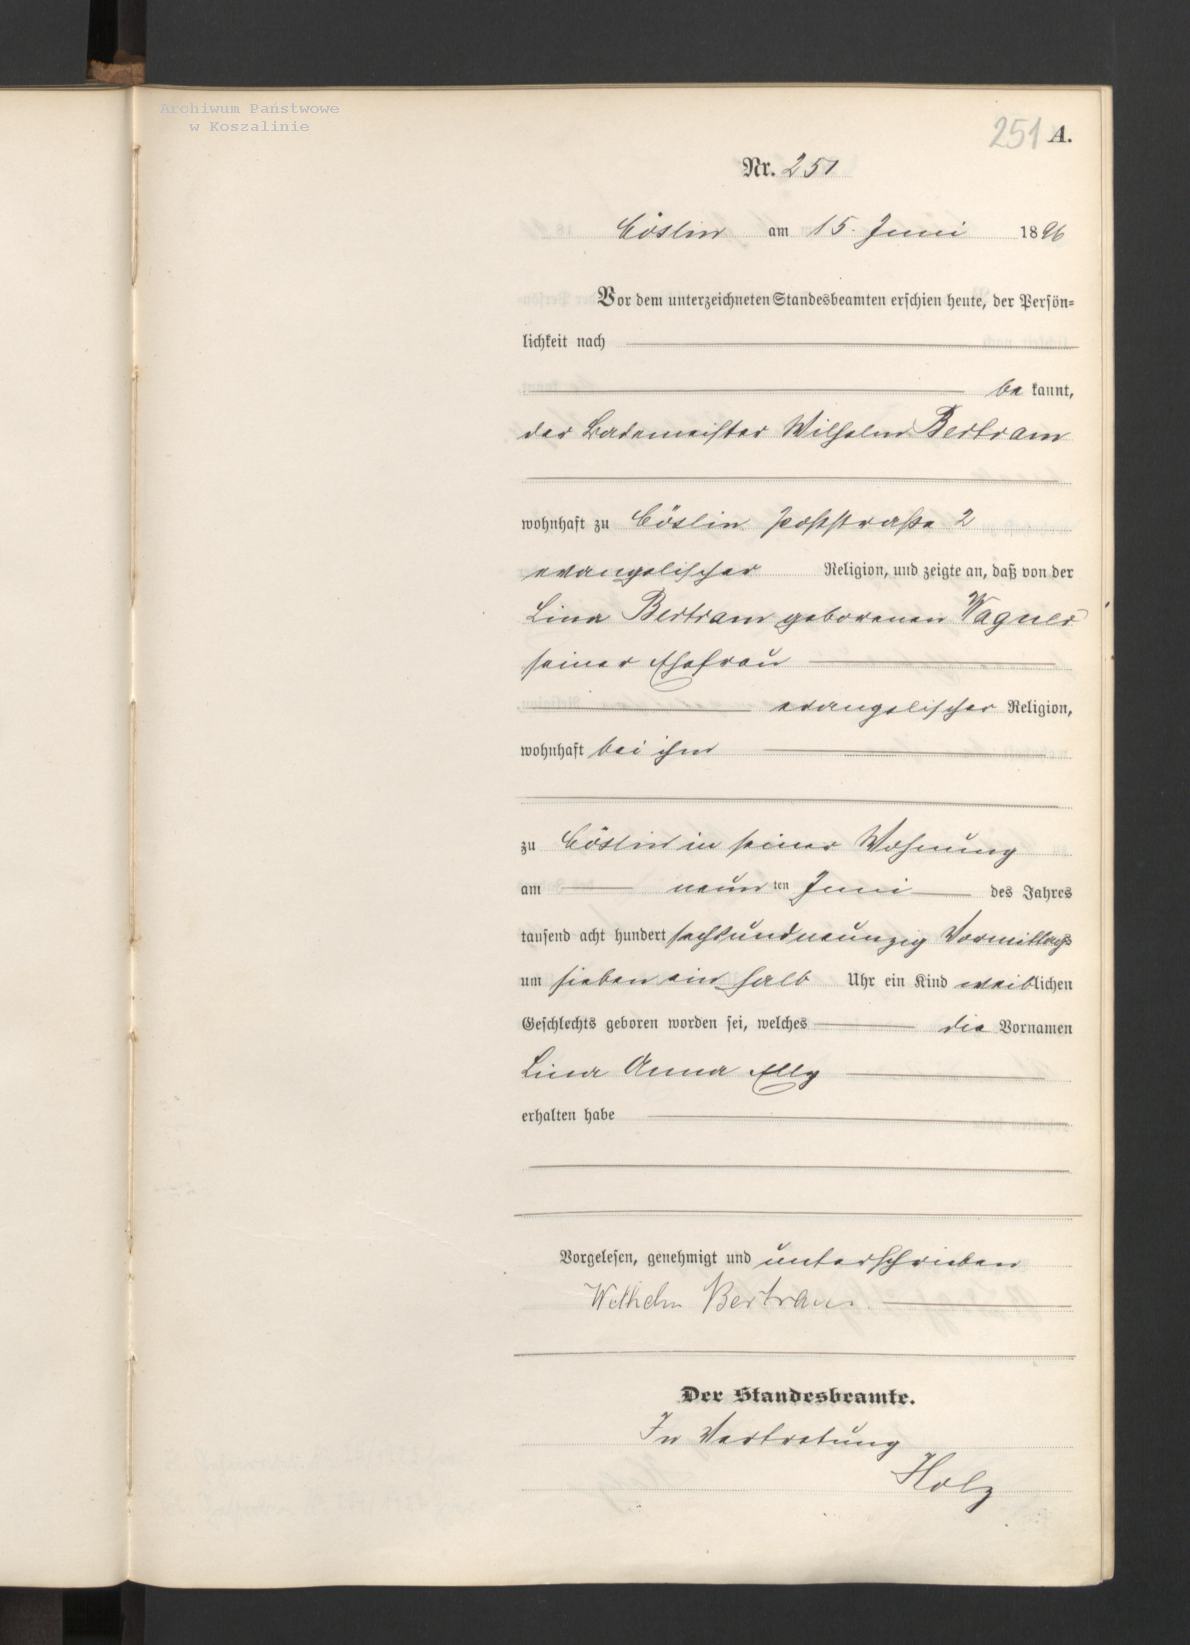 Archiwum Państwowe
w Koszalinie
251 A.
Nr. 251
Cöslin am 15. Juni 1896
Vor dem unterzeichneten Standesbeamten erschien heute, der Persön=
lichkeit nach
be kannt,
der Bademeister Wilhelm Bertram
wohnhaft zu Cöslin Poststraße 2
evangelischer Religion, und zeigte an, daß von der
Lina Bertram geborenen Wagner
seiner Ehefrau
evangelischer Religion,
wohnhaft bei ihm
zu Cöslin in seiner Wohnung
am neun ten Juni des Jahres
tausend acht hundert sechsundneunzig Vormittags
um sieben ein halb Uhr ein Kind weiblichen
Geschlechts geboren worden sei, welches die Vornamen
Lina Anna Elly
erhalten habe
Vorgelesen, genehmigt und unterschrieben
Wilhelm Bertram.
Der Standesbeamte.
In Vertretung
Holz